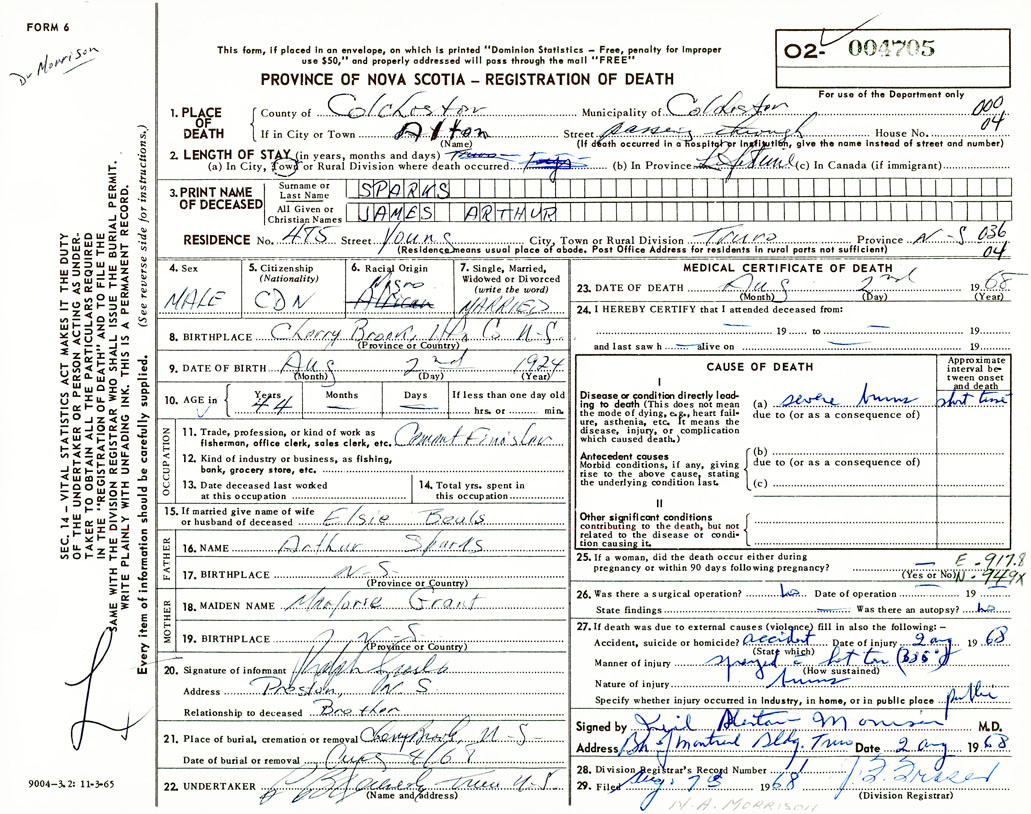 FORM 6
Dr Morrison
This form, if placed in an envelope, on which is printed "Dominion Statistics — Free, penalty for improper
use $50," and properly addressed will pass through the mail "FREE"
PROVINCE OF NOVA SCOTIA — REGISTRATION OF DEATH
02- 004705
For use of the Department only
000
04
1. PLACE OF DEATH
County of Colchester Municipality of Colchester
If in City or Town Alton Street passing through House No.
(Name) (If death occurred in a hospital or institution, give the name instead of street and number)
2. LENGTH OF STAY (in years, months and days)
(a) In City, Town or Rural Division where death occurred (b) In Province Lifetime (c) In Canada (if immigrant)
3. PRINT NAME OF DECEASED
Surname or Last Name SPARKS
All Given or Christian Names JAMES ARTHUR
RESIDENCE No. 475 Street Young City, Town or Rural Division Truro Province N-S
(Residence means usual place of abode. Post Office Address for residents in rural parts not sufficient)
036
04
4. Sex
MALE
5. Citizenship (Nationality)
CDN
6. Racial Origin
Negro
African
7. Single, Married, Widowed or Divorced (write the word)
MARRIED
8. BIRTHPLACE Cherry Brook, Hfx Co N-S
(Province or Country)
9. DATE OF BIRTH Aug 2nd 1924
(Month) (Day) (Year)
10. AGE in Years 44 Months — Days — If less than one day old
hrs. or min.
OCCUPATION
11. Trade, profession, or kind of work as
fisherman, office clerk, sales clerk, etc. Cement Finisher
12. Kind of industry or business, as fishing,
bank, grocery store, etc.
13. Date deceased last worked
at this occupation
14. Total yrs. spent in
this occupation
15. If married give name of wife
or husband of deceased Elsie Beals
FATHER
16. NAME Arthur Sparks
17. BIRTHPLACE N-S
(Province or Country)
MOTHER
18. MAIDEN NAME Marjorie Grant
19. BIRTHPLACE N-S
(Province or Country)
20. Signature of informant Ralph Sparks
Address Preston, N S
Relationship to deceased Brother
21. Place of burial, cremation or removal Cherry Brook, N-S
Date of burial or removal Aug 4/68
22. UNDERTAKER Truro N-S
(Name and address)
MEDICAL CERTIFICATE OF DEATH
23. DATE OF DEATH Aug 2nd 1968
(Month) (Day) (Year)
24. I HEREBY CERTIFY that I attended deceased from:
— 19 — to — 19
and last saw h — alive on — 19
CAUSE OF DEATH
Approximate interval between onset and death
I
Disease or condition directly leading
to death (This does not mean
the mode of dying, e.g., heart failure,
asthenia, etc. It means the
disease, injury, or complication
which caused death.)
(a) severe burns short time
due to (or as a consequence of)
Antecedent causes
Morbid conditions, if any, giving
rise to the above cause, stating
the underlying condition last.
(b)
due to (or as a consequence of)
(c)
II
Other significant conditions
contributing to the death, but not
related to the disease or condition
causing it.
25. If a woman, did the death occur either during
pregnancy or within 90 days following pregnancy? —
(Yes or No)
E-917.8
N-949X
26. Was there a surgical operation? no Date of operation — 19
State findings — Was there an autopsy? no
27. If death was due to external causes (violence) fill in also the following:—
Accident, suicide or homicide? accident Date of injury 2 aug 1968
(State which)
Manner of injury sprayed c hot tar (335°)
(How sustained)
Nature of injury burns
Specify whether injury occurred in Industry, in home, or in public place public
Signed by Morrison M.D.
Address Bk of Montreal Bldg. Truro Date 2 aug 1968
28. Division Registrar's Record Number
29. Filed Aug. 7 1968 J. B. Fraser
(Division Registrar)
N. A. MORRISON
SEC. 14 — VITAL STATISTICS ACT MAKES IT THE DUTY
OF THE UNDERTAKER OR PERSON ACTING AS UNDERTAKER
TO OBTAIN ALL THE PARTICULARS REQUIRED
IN THE "REGISTRATION OF DEATH" AND TO FILE THE
SAME WITH THE DIVISION REGISTRAR WHO SHALL ISSUE THE BURIAL PERMIT.
WRITE PLAINLY WITH UNFADING INK. THIS IS A PERMANENT RECORD.
Every item of information should be carefully supplied. (See reverse side for instructions.)
9004-3.2: 11-3-65